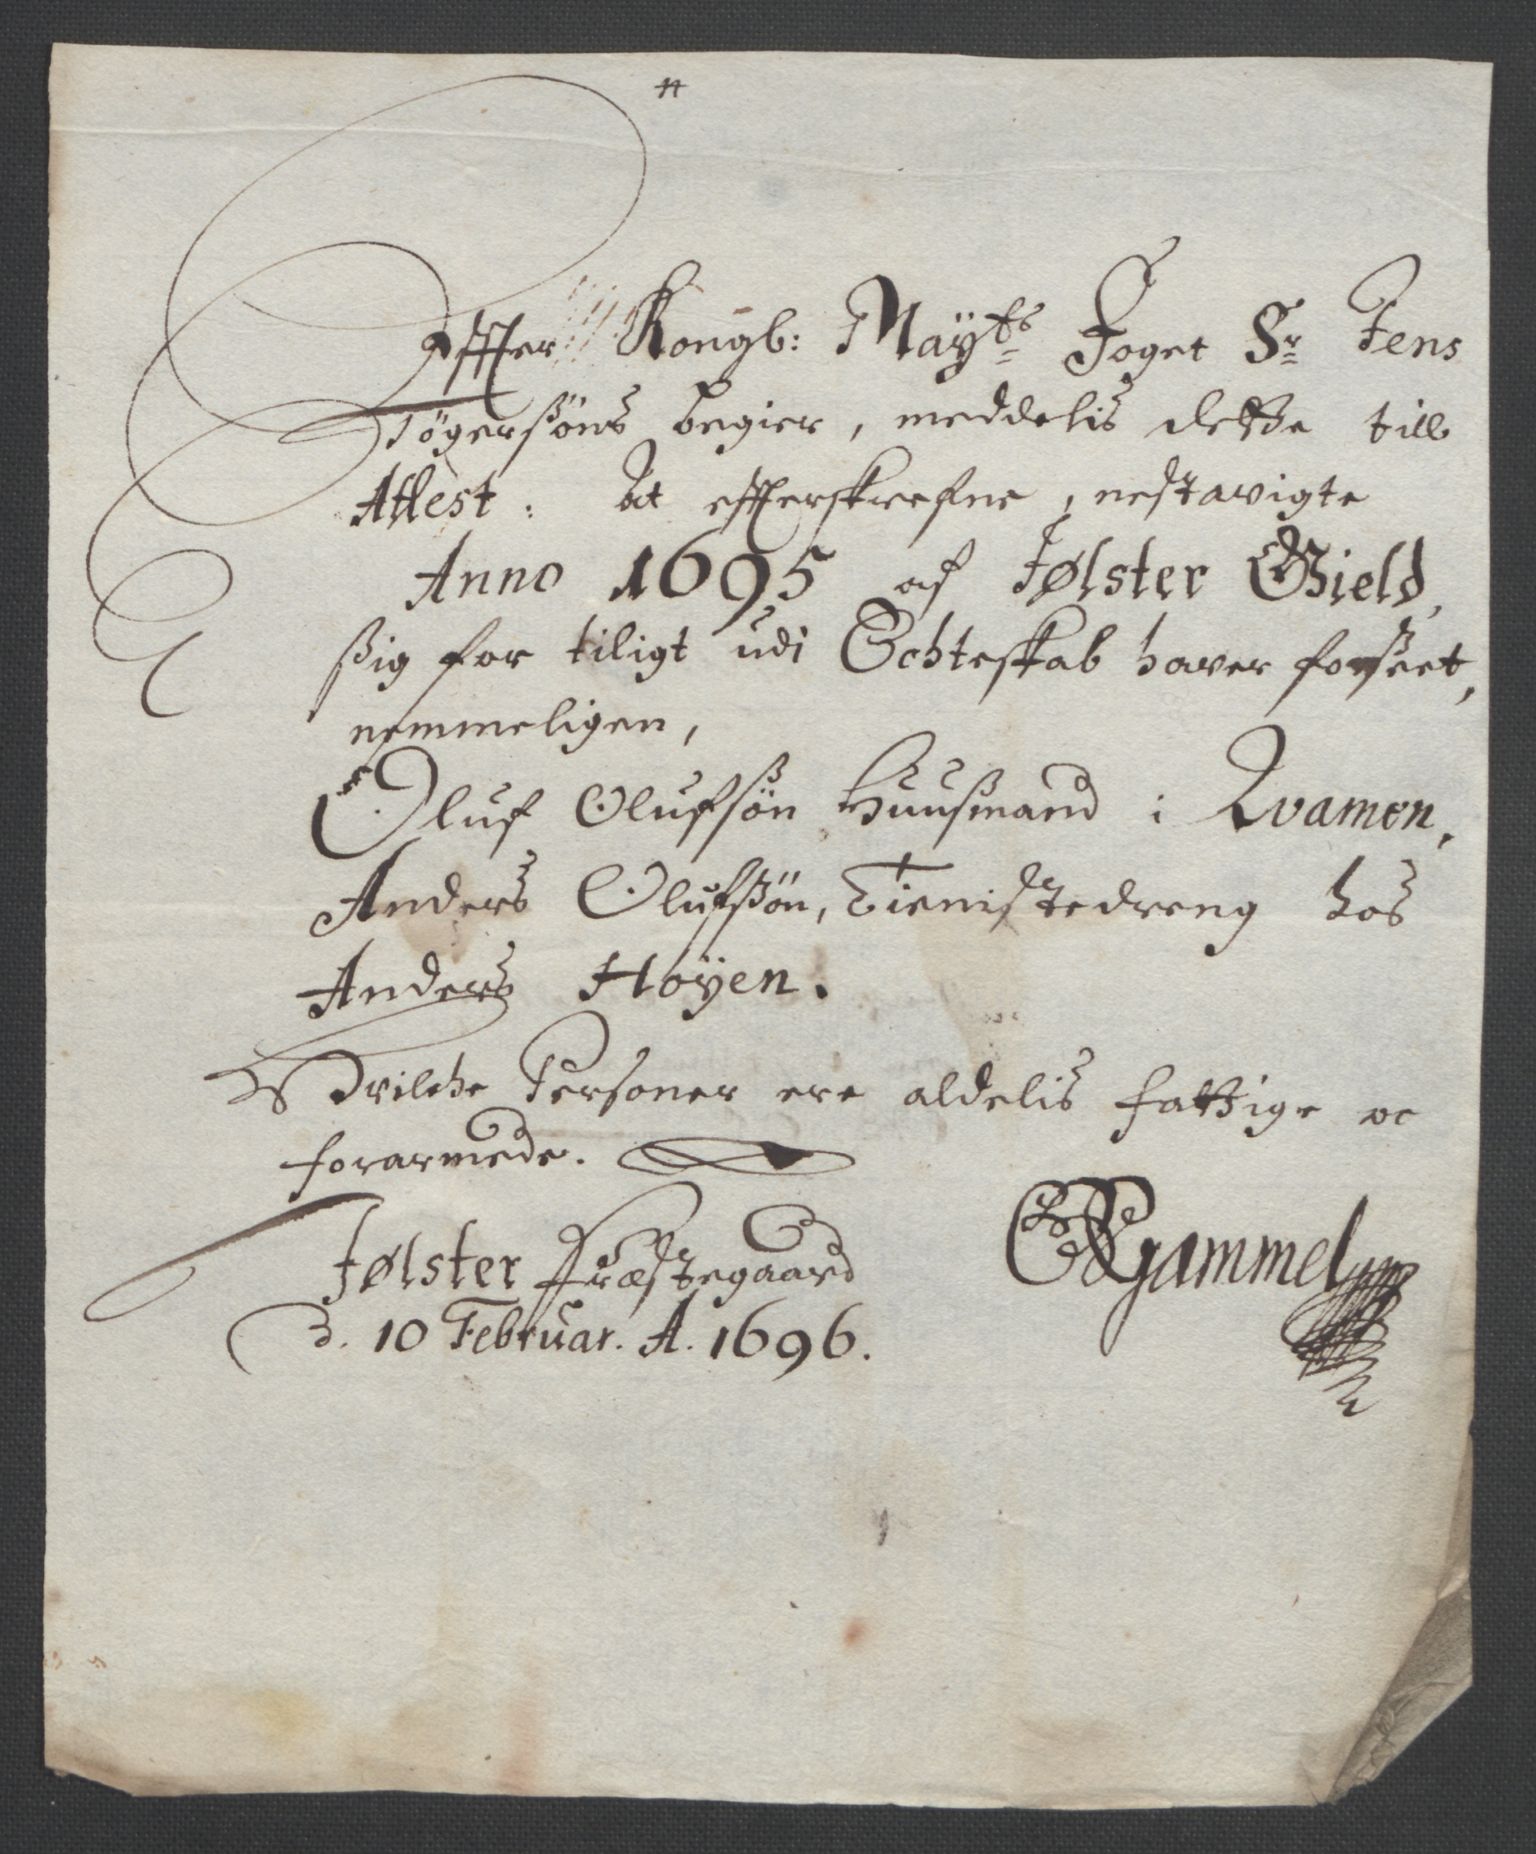 Effter Kongl: Mayts Foget Sr Jens
Tögersöns begier, meddelis dette till
Attest: At effterskrefne, nestavigte
Anno 1695 af Jølster Gield,
sig for tiligt udi Echteskab haver forseet,
nemmeligen,
Oluf Olufsön Huusmand i Qvamen,
Anders Olufsön, Tienistedreng hos
Anders Høyen.
Hvilche Personer ere aldelis fattige oc
forarmede.
Jølster Præstegaard
d. 10 Februar. A. 1696.
Gammel